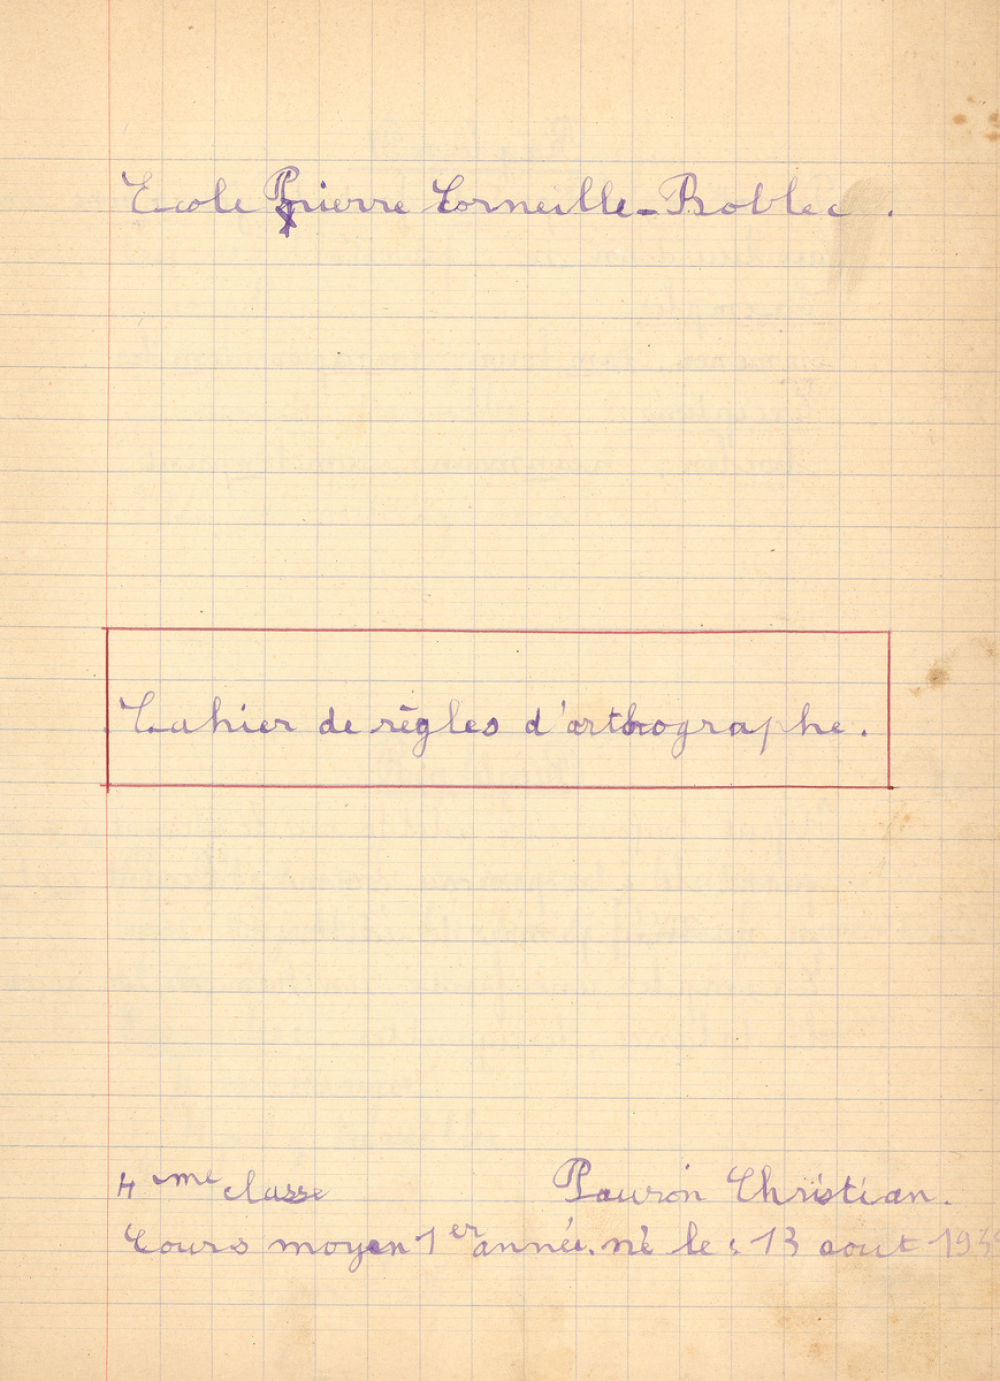 Ecole Pierre Corneille-Boblec.
Cahier de règles d'orthographe.
4 me classe Pauron Christian.
Cours moyen 1 er année. né le : 13 aout 193